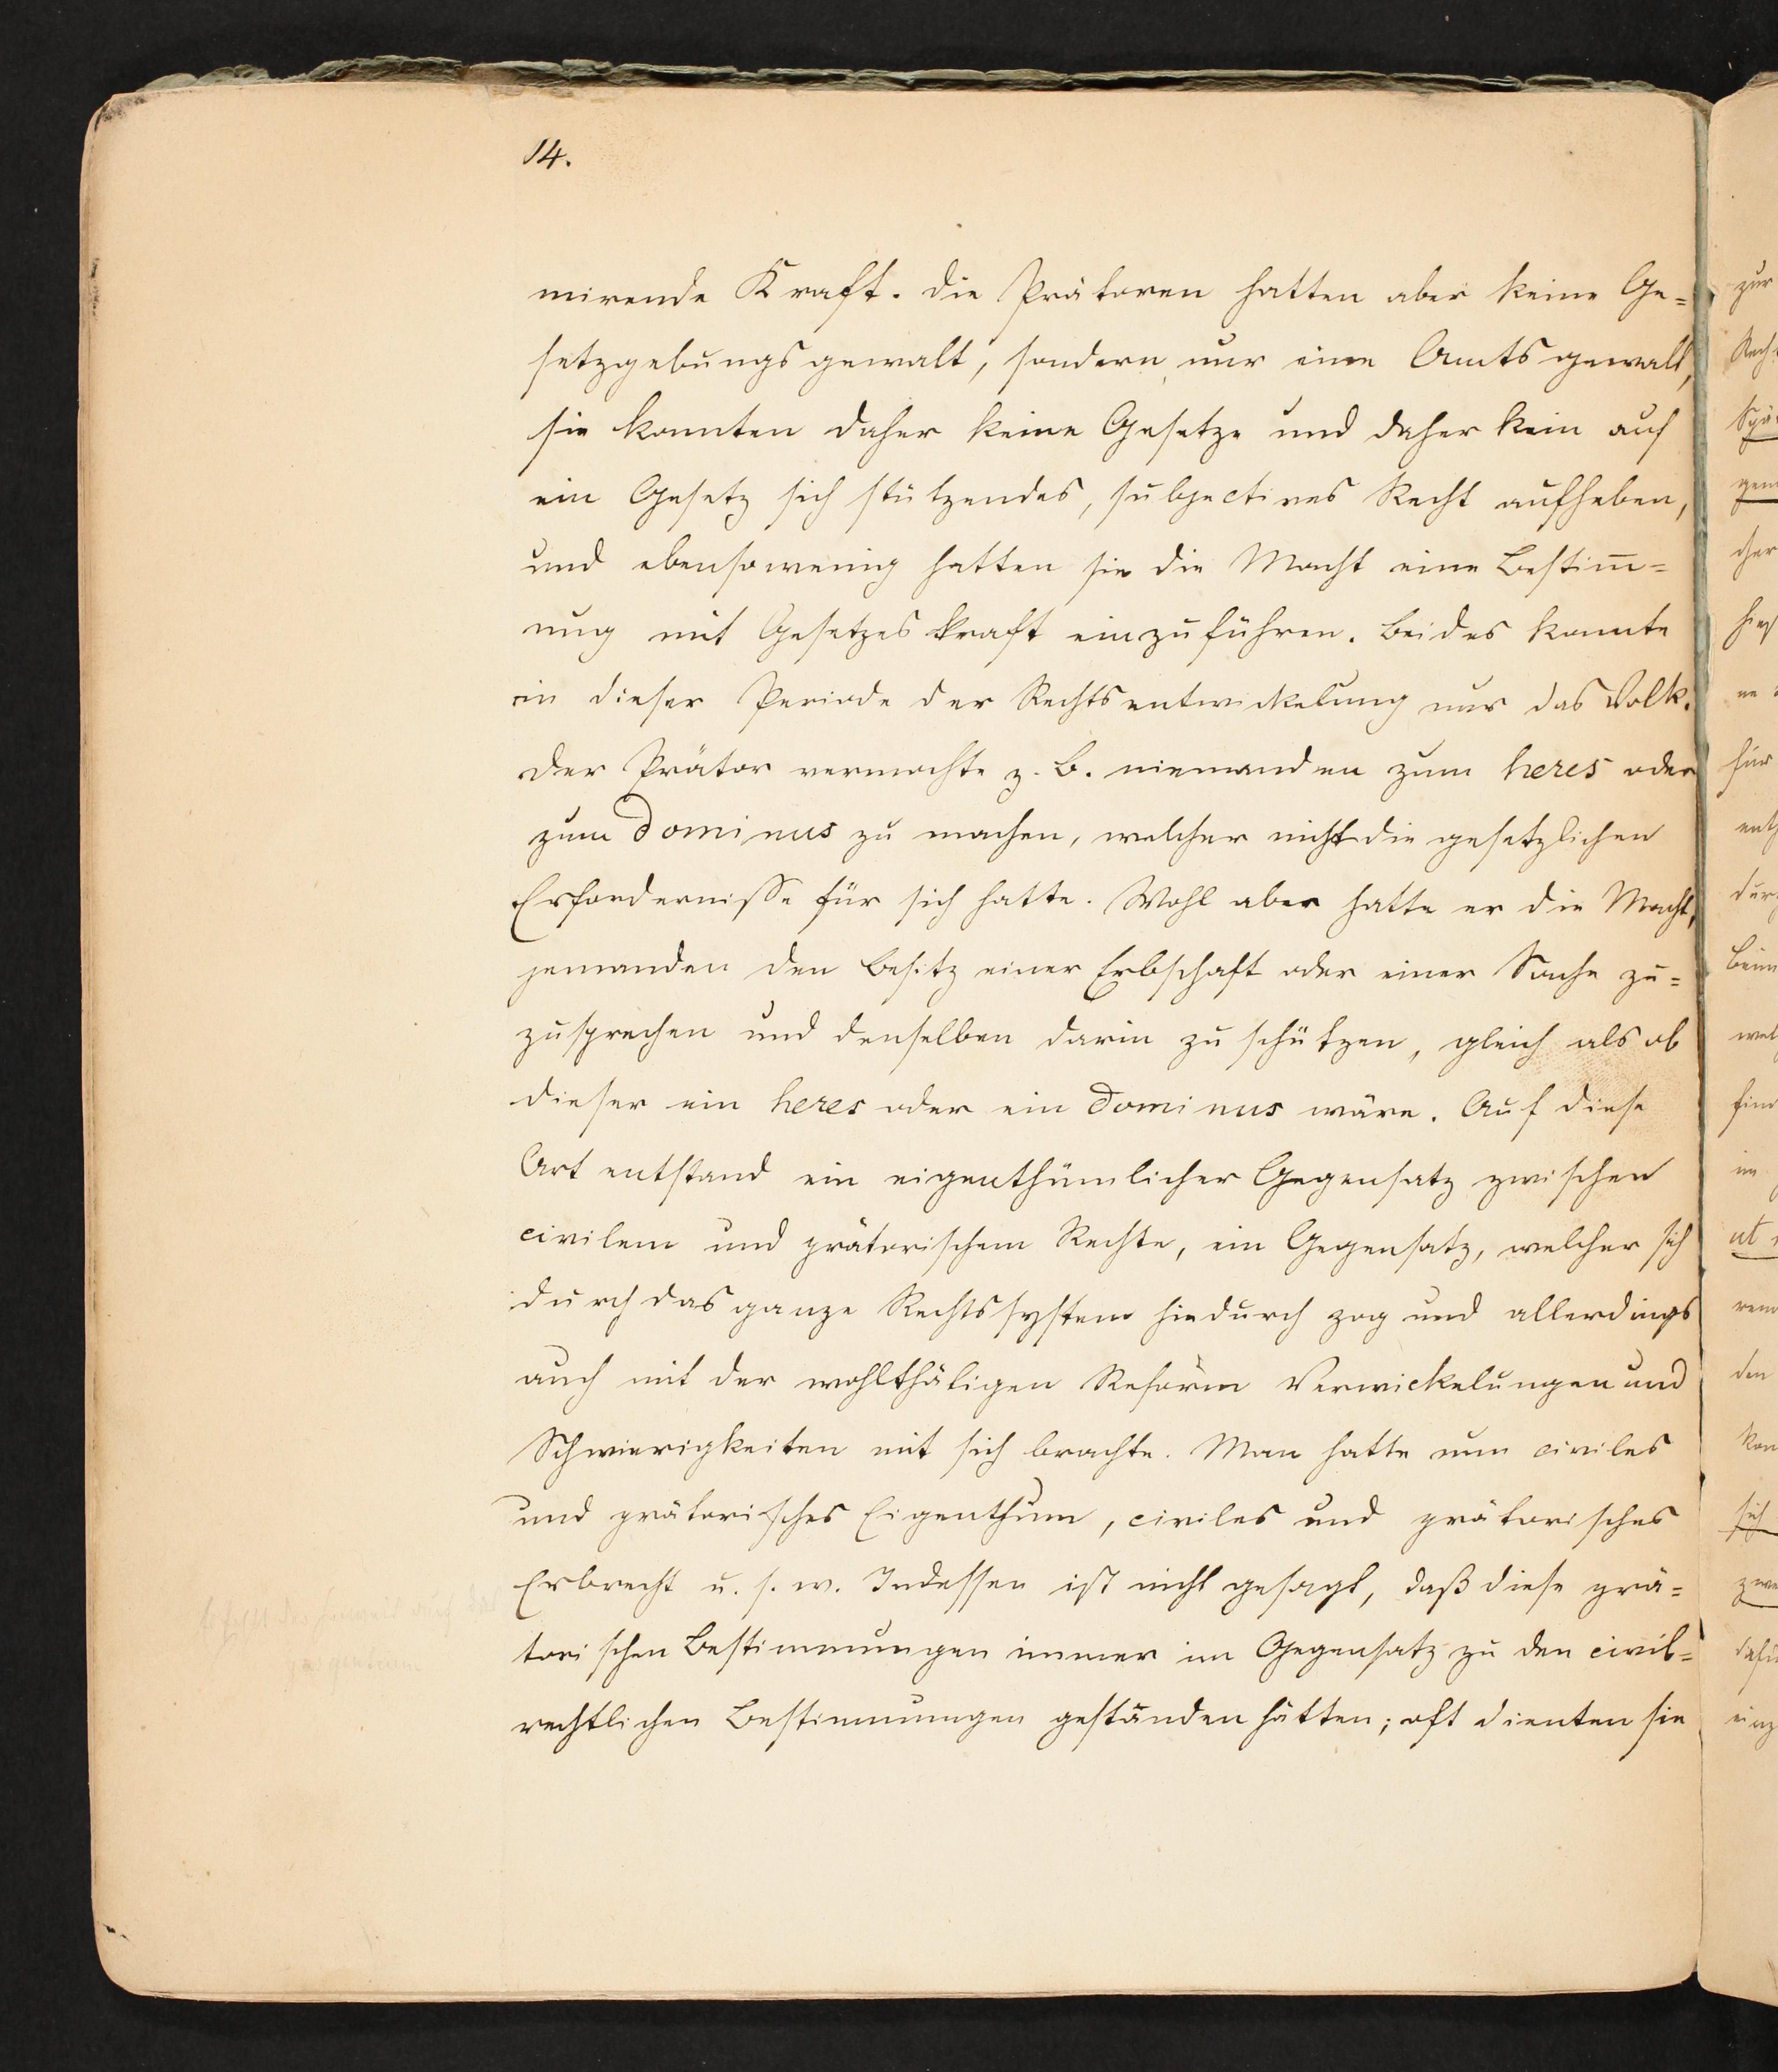 14.
mirende Kraft. Die Prätoren hatten aber keine Ge=
setzgebungsgewalt, sondern nur eine Amtsgewalt,
sie konnten daher keine Gesetze und daher kein auf
ein Gesetz sich stützendes, subjectives Recht aufheben,
und ebensowenig hatten sie die Macht eine Bestim̅=
ung mit Gesetzeskraft einzuführen. Beides konnte
in dieser Periode der Rechtsentwickelung nur das Volk.
Der Prätor vermochte z. B. niemanden zum heres oder
zum Dominus zu machen, welcher nicht die gesetzlichen
Erfordernisse für sich hatte. Wohl aber hatte er die Macht,
jemanden den Besitz einer Erbschaft oder einer Sache zu=
zusprechen und denselben darin zu schützen, gleich als ob
dieser ein heres oder ein Dominus wäre. Auf diese
Art entstand ein eigenthümlicher Gegensatz zwischen
civilem und prätorischem Rechte, ein Gegensatz, welcher sich
durch das ganze Rechtssystem hindurch zog und allerdings
auch mit der wohlthätigen Reform Verwickelungen und
Schwierigkeiten mit sich brachte. Man hatte nun civiles
und prätorisches Eigenthum, civiles und prätorisches
Erbrecht u. s. w. Indessen ist nicht gesagt, daß diese prä=
torischen Bestimmungen immer im Gegensatz zu den civil=
rechtlichen Bestimmungen gestanden hätten; oft dienten sie